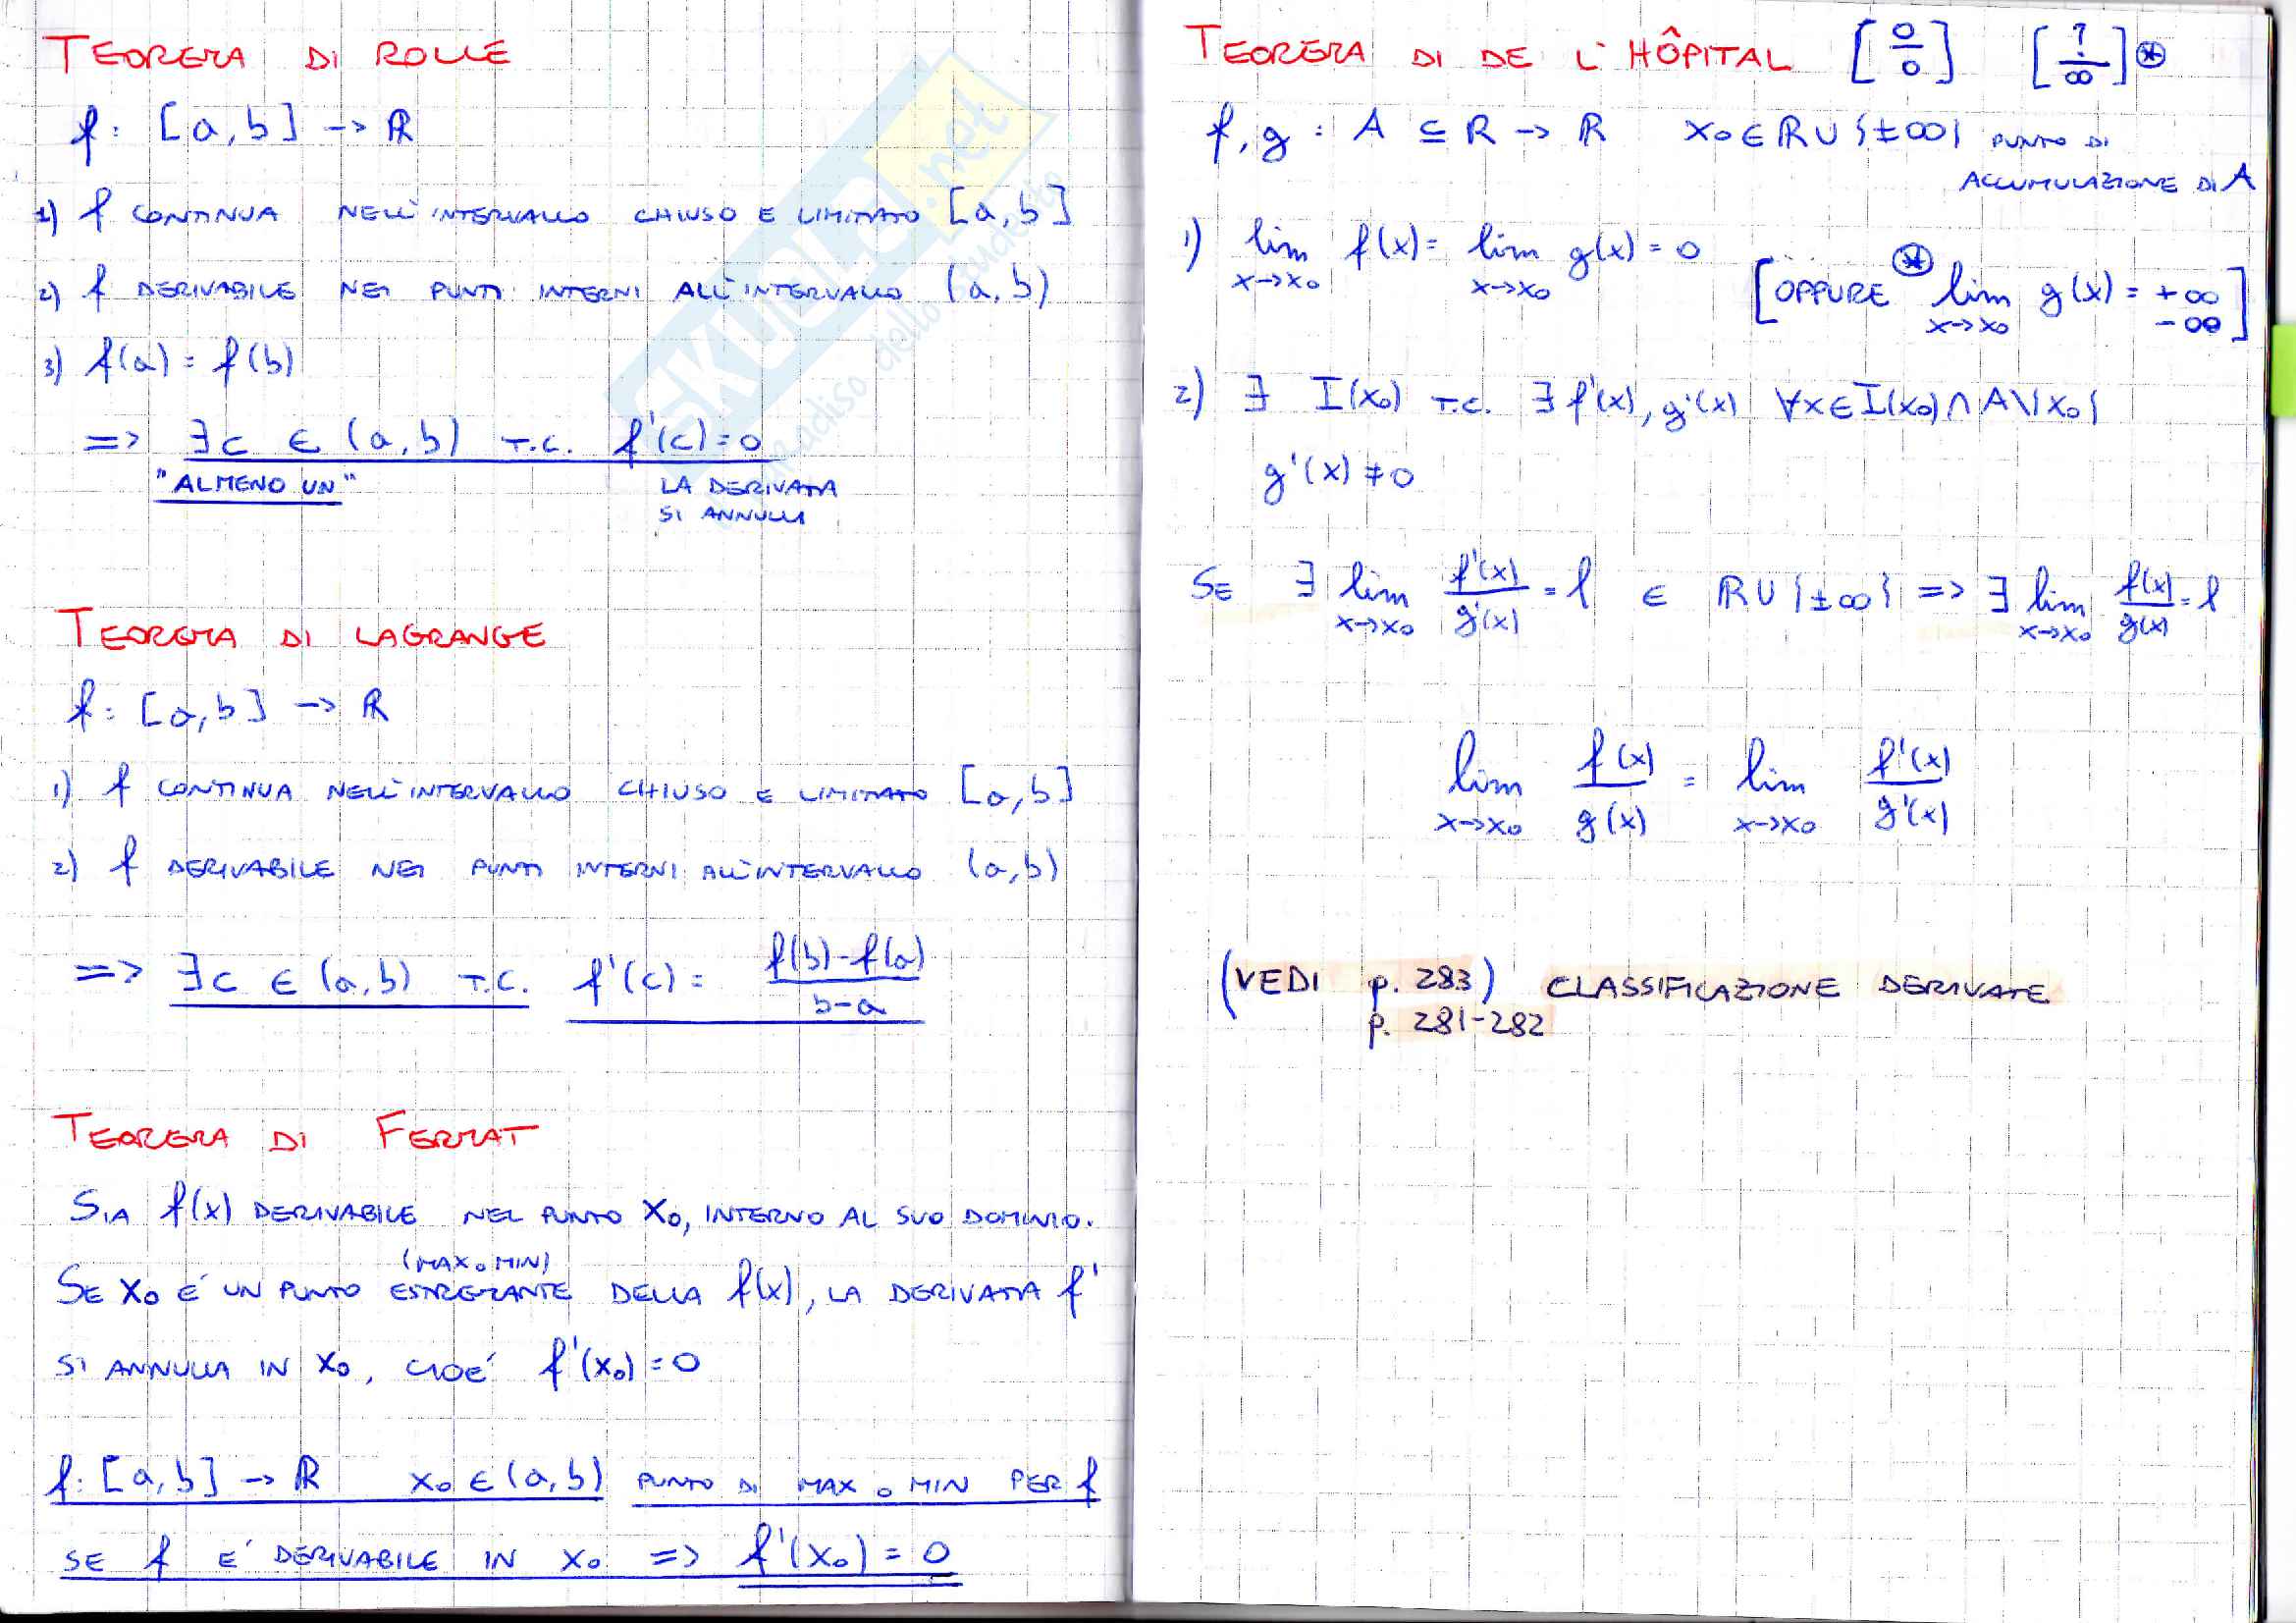 TEOREMA DI ROLLE
f: [a,b] -> ℝ
1) f CONTINUA NELL'INTERVALLO CHIUSO E LIMITATO [a,b]
2) f DERIVABILE NEI PUNTI INTERNI ALL'INTERVALLO (a,b)
3) f(a) = f(b)
=> ∃c ∈ (a,b) T.C. f'(c)=0
"ALMENO UN" LA DERIVATA
SI ANNULLA
TEOREMA DI LAGRANGE
f: [a,b] -> ℝ
1) f CONTINUA NELL'INTERVALLO CHIUSO E LIMITATO [a,b]
2) f DERIVABILE NEI PUNTI INTERNI ALL'INTERVALLO (a,b)
=> ∃c ∈ (a,b) T.C. f'(c) = f(b)-f(a) / b-a
TEOREMA DI FERMAT
SIA f(x) DERIVABILE NEL PUNTO x₀, INTERNO AL SUO DOMINIO.
(MAX o MIN)
SE x₀ E' UN PUNTO ESTREMANTE DELLA f(x), LA DERIVATA f'
SI ANNULLA IN x₀, CIOE' f'(x₀)=0
f: [a,b] -> ℝ x₀ ∈ (a,b) PUNTO DI MAX o MIN PER f
SE f E' DERIVABILE IN x₀ => f'(x₀) = 0
TEOREMA DI DE L'HÔPITAL [0/0] [?/∞] ⊛
f, g : A ⊆ ℝ -> ℝ x₀ ∈ ℝ ∪ {±∞} PUNTO DI
ACCUMULAZIONE DI A
1) lim x->x₀ f(x) = lim x->x₀ g(x) = 0 [OPPURE ⊛ lim x->x₀ g(x) = +∞ -∞]
2) ∃ I(x₀) T.C. ∃ f'(x), g'(x) ∀x ∈ I(x₀) ∩ A\{x₀}
g'(x) ≠ 0
SE ∃ lim x->x₀ f'(x)/g'(x) = l ∈ ℝ ∪ {±∞} => ∃ lim x->x₀ f(x)/g(x) = l
lim x->x₀ f(x)/g(x) = lim x->x₀ f'(x)/g'(x)
(VEDI p. 283) CLASSIFICAZIONE DERIVATE
p. 281-282
SKUOLA.net